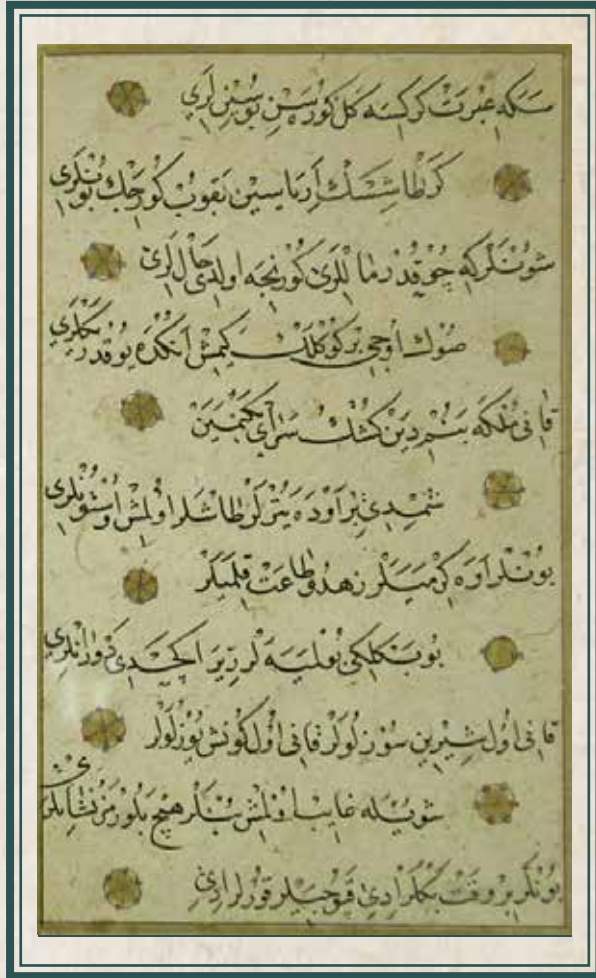 سكا عبرت كركسه كل كورسن بو سينلري
كر طاشسك اريياسين بقوب كورجك بونلري
شونلركه چوقدر ماللري كور نجه اولدي حاللري
صوك اوجي بر كوكلك كيمش انكده يوقدر يكلري
قاني ملكه بنم دين كشك سراي بكنمين
شمدي بر اوده يترلر طاشلر اولمش اوستونلري
بونلر اوه كرميلر زهد و طاعت قلميلر
بو بكلكي بولميه لر زيرا كچدي دورانلري
قاني اول شيرين سوزلولر قاني اول كونش يوزلولر
شويله غايب اولمش بونلر هيچ بلورمز نشانلري
بونلر بر وقت بكلر ادي قپوجيلر قورلر ادي